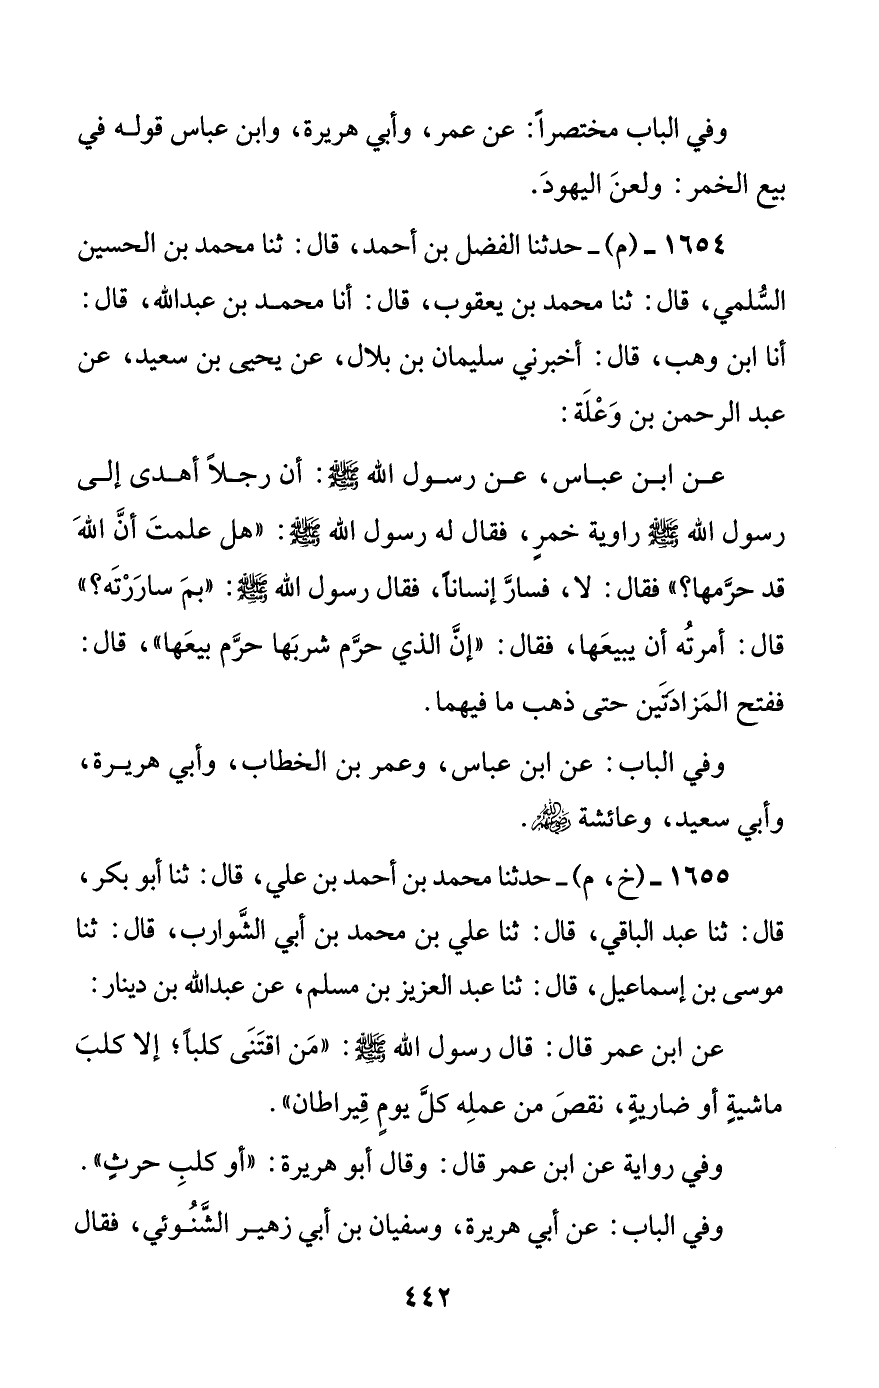 وفي الباب مختصراً: عن عمر، وأبي هريرة، وابن عباس قوله في
بيع الخمر: ولعنَ اليهودَ.
١٦٥٤ ـ (م) ـ حدثنا الفضل بن أحمد، قال: ثنا محمد بن الحسين
السُّلمي، قال: ثنا محمد بن يعقوب، قال: أنا محمد بن عبدالله، قال:
أنا ابن وهب، قال: أخبرني سليمان بن بلال، عن يحيى بن سعيد، عن
عبد الرحمن بن وَعْلَة:
عن ابن عباس، عن رسول الله ﷺ: أن رجلاً أهدى إلى
رسول الله ﷺ راوية خمرٍ، فقال له رسول الله ﷺ: «هل علمتَ أنَّ اللهَ
قد حرَّمها؟» فقال: لا، فسارَّ إنساناً، فقال رسول الله ﷺ: «بمَ سارَرْتَه؟»
قال: أمرتُه أن يبيعَها، فقال: «إنَّ الذي حرَّم شربَها حرَّم بيعَها»، قال:
ففتح المَزادَتَين حتى ذهب ما فيهما.
وفي الباب: عن ابن عباس، وعمر بن الخطاب، وأبي هريرة،
وأبي سعيد، وعائشة ﵃.
١٦٥٥ ـ (خ، م) ـ حدثنا محمد بن أحمد بن علي، قال: ثنا أبو بكر،
قال: ثنا عبد الباقي، قال: ثنا علي بن محمد بن أبي الشَّوارب، قال: ثنا
موسى بن إسماعيل، قال: ثنا عبد العزيز بن مسلم، عن عبدالله بن دينار:
عن ابن عمر قال: قال رسول الله ﷺ: «مَن اقتَنَى كلباً؛ إلا كلبَ
ماشيةٍ أو ضاريةٍ، نقصَ من عملِه كلَّ يومٍ قِيراطان».
وفي رواية عن ابن عمر قال: وقال أبو هريرة: «أو كلبِ حرثٍ».
وفي الباب: عن أبي هريرة، وسفيان بن أبي زهير الشَّنُوئي، فقال
٤٤٢